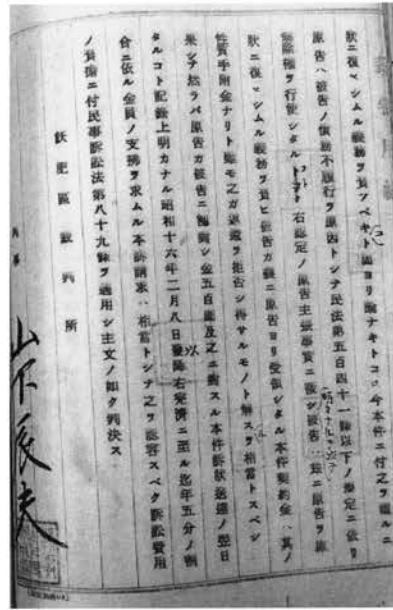 状ニ復セシムル義務ヲ負フベキト固ヨリ論ナキトコロ今本件ニ付之ヲ観ルニ
原告ハ被告ノ債務不履行ヲ原因トシテ民法第五百四十一條以下ノ規定ニ依リ
解除権ヲ行使シタルコト右認定ノ原告主張事実ニ徴シ被告ハ茲ニ原告ヲ原
状ニ復セシムル義務ヲ負ヒ被告ガ曩ニ原告ヨリ受領シタル本件契約金ハ其ノ
性質手附金ナリト雖モ之ガ返還ヲ拒否シ得サルモノト解スヲ相當トスベシ
果シテ然ラバ原告ガ被告ニ對シ金五百圓及之ニ對スル本件訴状送達ノ翌日
タルコト記録上明カナル昭和十六年二月八日以降右完済ニ至ル迄年五分ノ割
合ニ依ル金員ノ支拂ヲ求ムル本訴請求ハ相當トシテ之ヲ認容スベク訴訟費用
ノ負擔ニ付民事訴訟法第八十九條ヲ適用シ主文ノ如ク判決ス
飫肥區裁判所
判事
山下辰夫